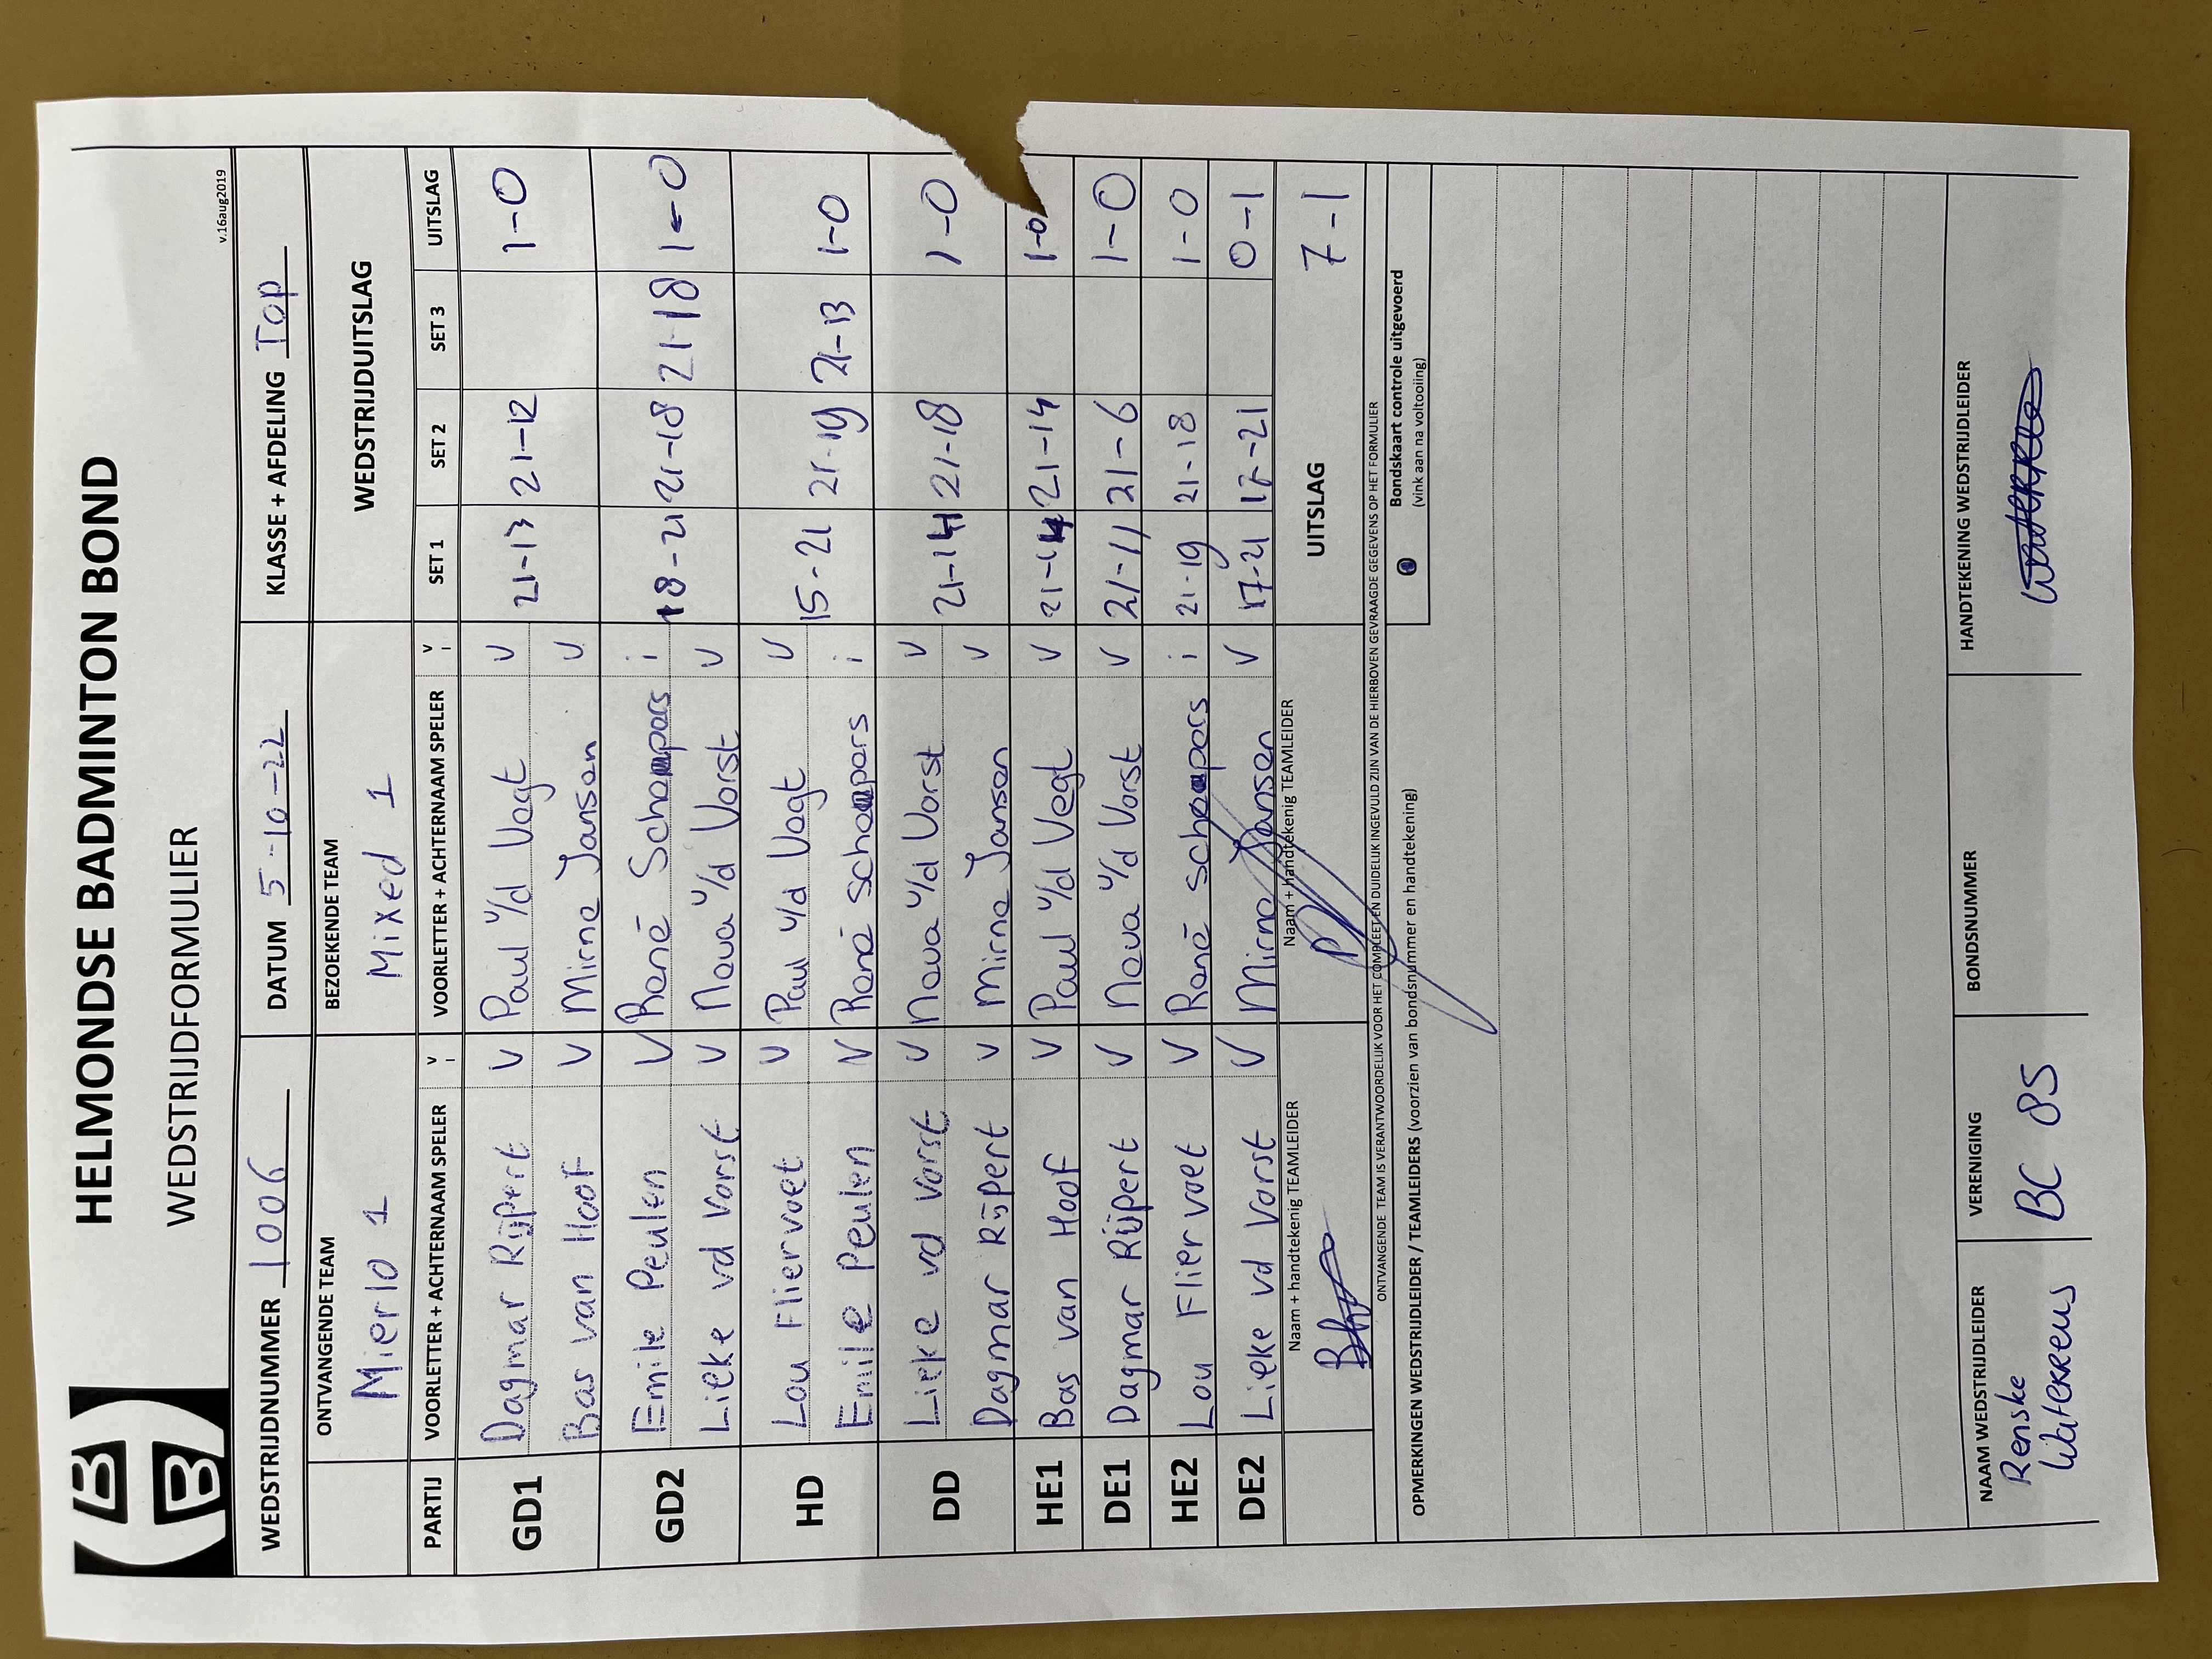 HELMONDSE BADMINTON BOND
WEDSTRIJDFORMULIER
v.16aug2019
WEDSTRIJDNUMMER 1006 DATUM 5-10-22 KLASSE + AFDELING Top
ONTVANGENDE TEAM BEZOEKENDE TEAM WEDSTRIJDUITSLAG
Mierlo 1 Mixed 1
PARTIJ VOORLETTER + ACHTERNAAM SPELER V I VOORLETTER + ACHTERNAAM SPELER V I SET 1 SET 2 SET 3 UITSLAG
GD1 Dagmar Rijpert V Paul v/d Vegt V 21-13 21-12 1-0
Bas van Hoof V Mirne Jansen V
GD2 Emile Peulen V René Schepers i 18-21 21-18 21-18 1-0
Lieke vd Vorst V Nova v/d Vorst V
HD Lou Fliervoet V Paul v/d Vegt V 15-21 21-19 21-13 1-0
Emile Peulen V René Schepers i
DD Lieke vd Vorst V Nova v/d Vorst V 21-14 21-18 1-0
Dagmar Rijpert V Mirne Jansen V
HE1 Bas van Hoof V Paul v/d Vegt V 21-14 21-14 1-0
DE1 Dagmar Rijpert V Nova v/d Vorst V 21-11 21-6 1-0
HE2 Lou Fliervoet V René Schepers i 21-19 21-18 1-0
DE2 Lieke vd Vorst V Mirne Jansen V 17-21 17-21 0-1
Naam + handtekenig TEAMLEIDER Naam + handtekenig TEAMLEIDER UITSLAG 7-1
ONTVANGENDE TEAM IS VERANTWOORDELIJK VOOR HET COMPLEET EN DUIDELIJK INGEVULD ZIJN VAN DE HIERBOVEN GEVRAAGDE GEGEVENS OP HET FORMULIER
OPMERKINGEN WEDSTRIJDLEIDER / TEAMLEIDERS (voorzien van bondsnummer en handtekening)
Bondskaart controle uitgevoerd
(vink aan na voltooiing)
NAAM WEDSTRIJDLEIDER VERENIGING BONDSNUMMER HANDTEKENING WEDSTRIJDLEIDER
Renske BC 85
Waterreus